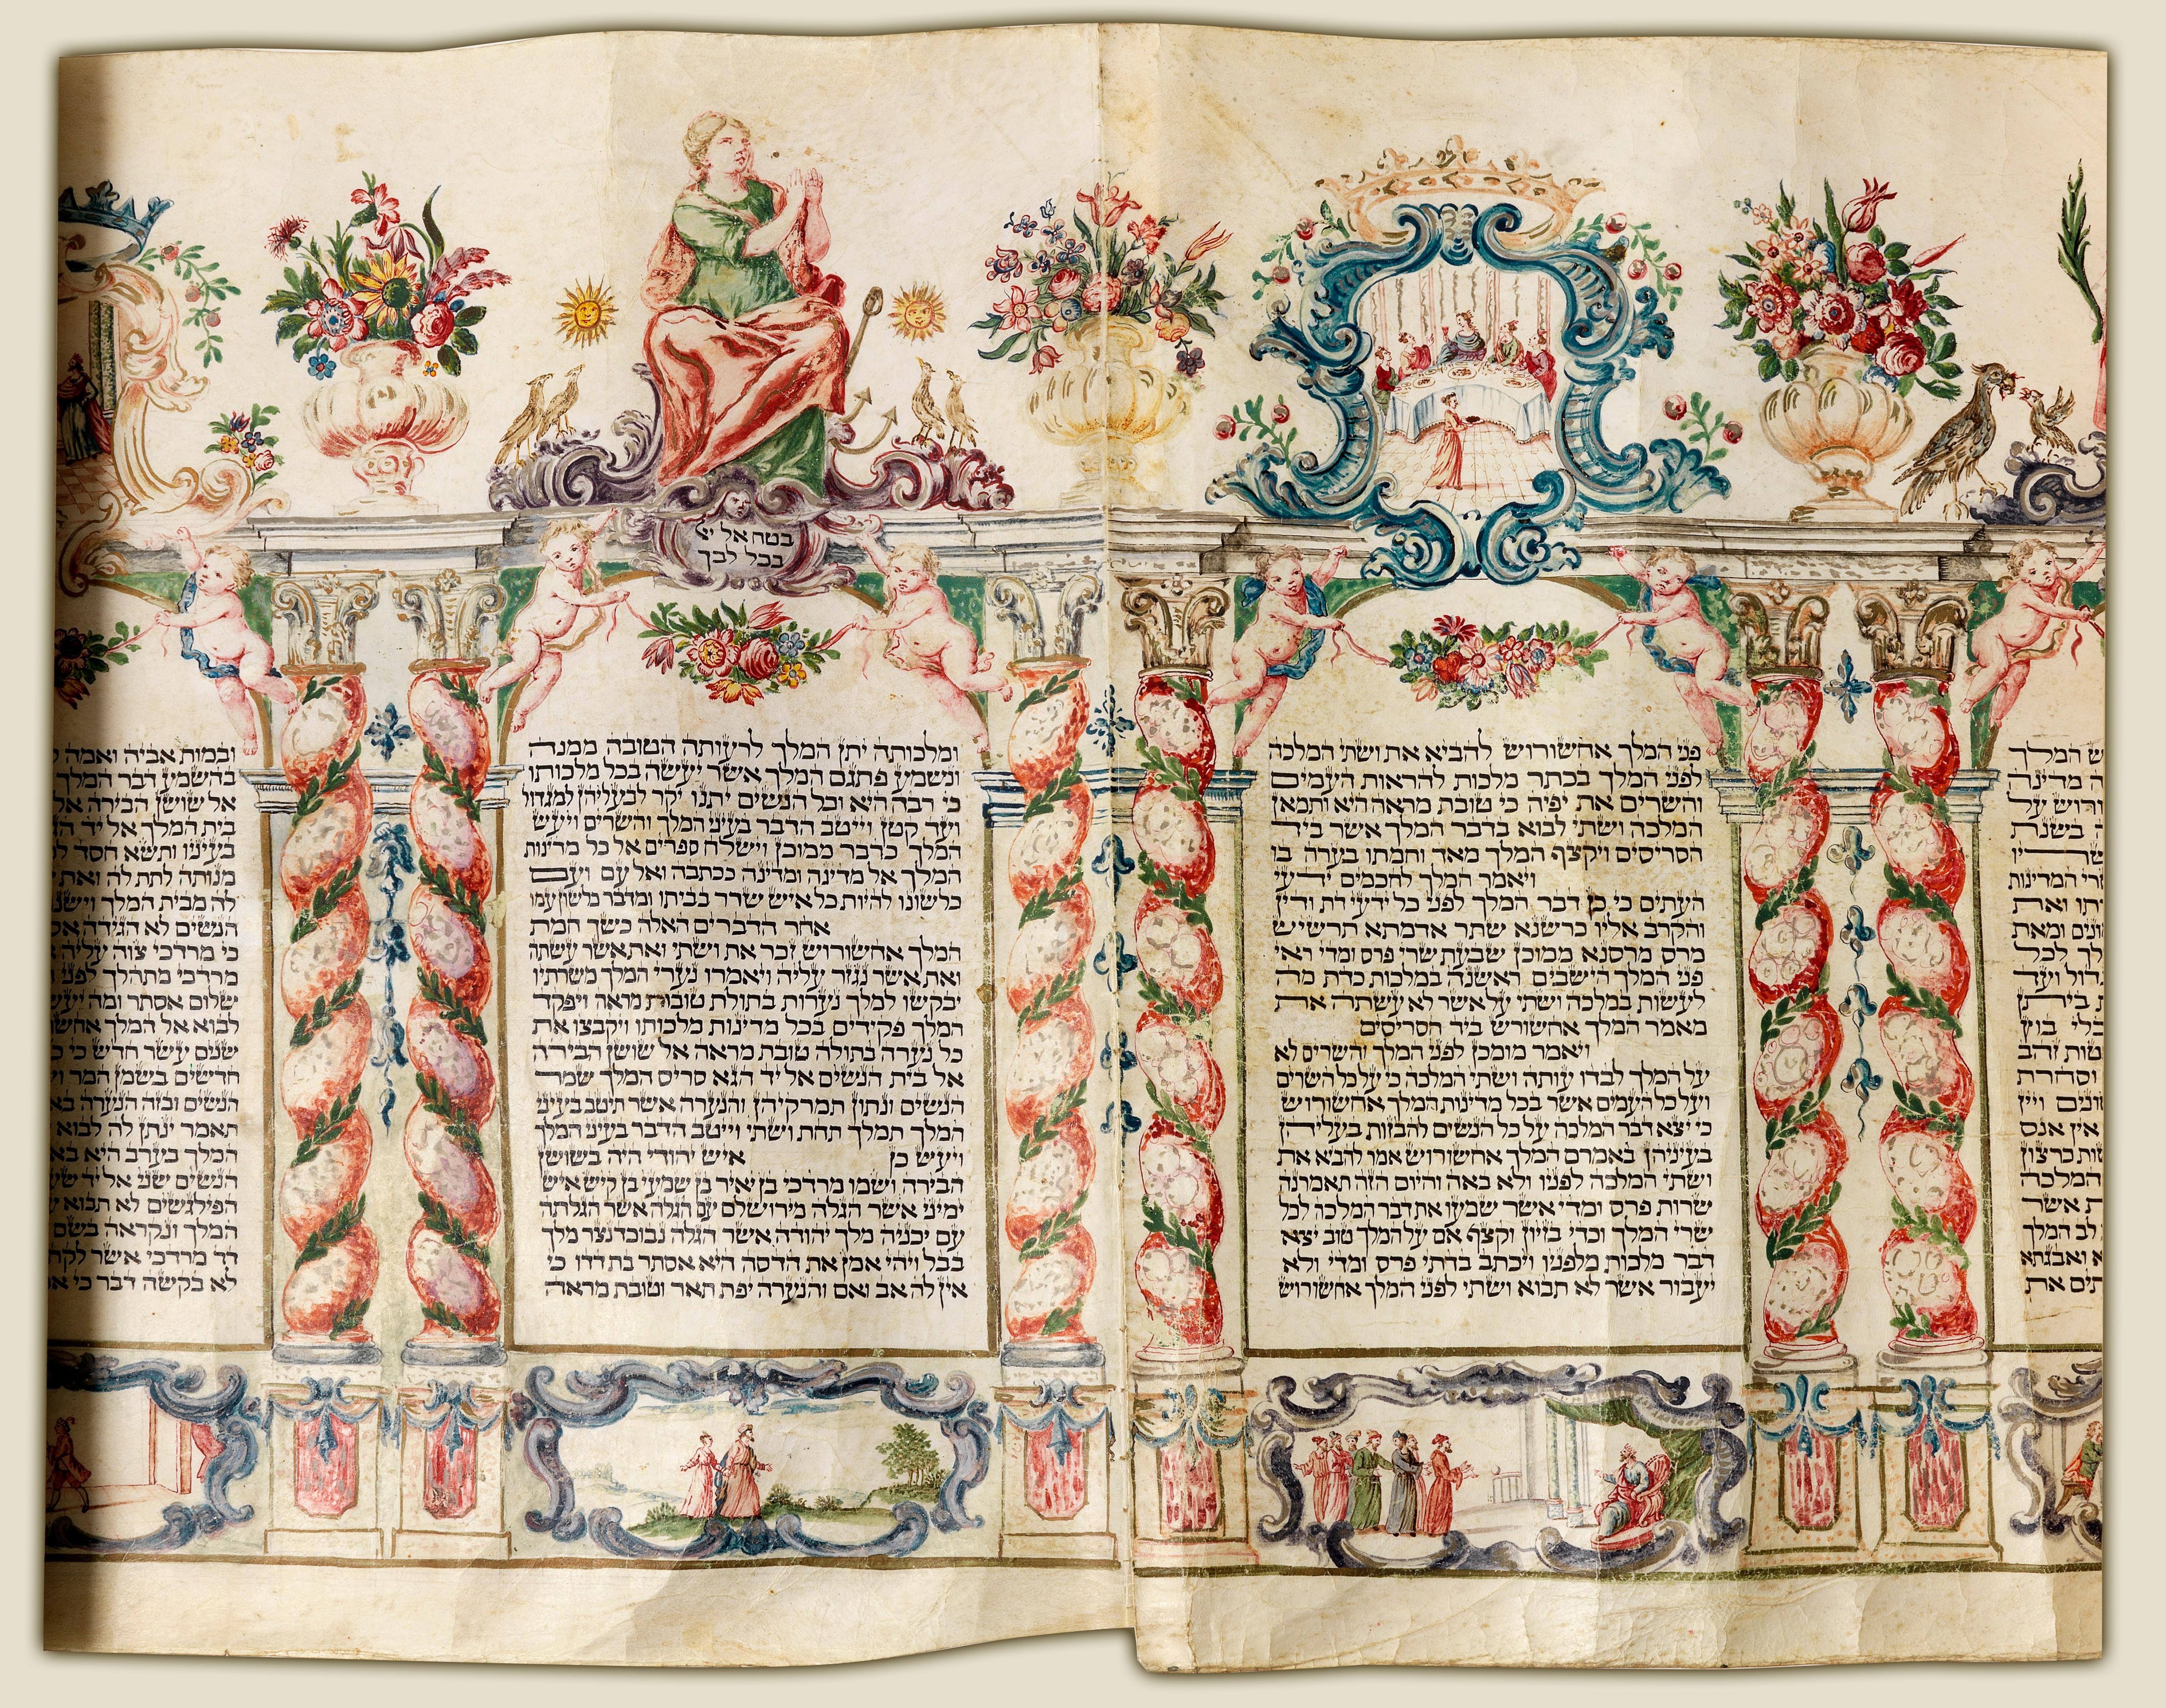 ש המלך
ה מדינה
ורוש על
ה בשנת
שריו
רי המדינות
תו ואת
ונים ומאת
לך לכל
דול ועד
ת ביתן
בלי בוץ
טות זהב
וסחרת
ונים ויין
אין אנס
שות כרצון
המלכה
ת אשר
לב המלך
א ואבגתא
תים את
פני המלך אחשורוש להביא את ושתי המלכה
לפני המלך בכתר מלכות להראות העמים
והשרים את יפיה כי טובת מראה היא ותמאן
המלכה ושתי לבוא בדבר המלך אשר ביד
הסריסים ויקצף המלך מאד וחמתו בערה בו
ויאמר המלך לחכמים ידעי
העתים כי כן דבר המלך לפני כל ידעי דת ודין
והקרב אליו כרשנא שתר אדמתא תרשיש
מרס מרסנא ממוכן שבעת שרי פרס ומדי ראי
פני המלך הישבים ראשנה במלכות כדת מה
לעשות במלכה ושתי על אשר לא עשתה את
מאמר המלך אחשורוש ביד הסריסים
ויאמר מומכן לפני המלך והשרים לא
על המלך לבדו עותה ושתי המלכה כי על כל השרים
ועל כל העמים אשר בכל מדינות המלך אחשורוש
כי יצא דבר המלכה על כל הנשים להבזות בעליהן
בעיניהן באמרם המלך אחשורוש אמר להביא את
ושתי המלכה לפניו ולא באה והיום הזה תאמרנה
שרות פרס ומדי אשר שמעו את דבר המלכה לכל
שרי המלך וכדי בזיון וקצף אם על המלך טוב יצא
דבר מלכות מלפניו ויכתב בדתי פרס ומדי ולא
יעבור אשר לא תבוא ושתי לפני המלך אחשורוש
בטח אל יי
בכל לבך
ומלכותה יתן המלך לרעותה הטובה ממנה
ונשמע פתגם המלך אשר יעשה בכל מלכותו
כי רבה היא וכל הנשים יתנו יקר לבעליהן למגדול
ועד קטן וייטב הדבר בעיני המלך והשרים ויעש
המלך כדבר ממוכן וישלח ספרים אל כל מדינות
המלך אל מדינה ומדינה ככתבה ואל עם ועם
כלשונו להיות כל איש שרר בביתו ומדבר כלשון עמו
אחר הדברים האלה כשך חמת
המלך אחשורוש זכר את ושתי ואת אשר עשתה
ואת אשר נגזר עליה ויאמרו נערי המלך משרתיו
יבקשו למלך נערות בתולת טובות מראה ויפקד
המלך פקידים בכל מדינות מלכותו ויקבצו את
כל נערה בתולה טובת מראה אל שושן הבירה
אל בית הנשים אל יד הגא סריס המלך שמר
הנשים ונתון תמרקיהן והנערה אשר תיטב בעיני
המלך תמלך תחת ושתי וייטב הדבר בעיני המלך
ויעש כן איש יהודי היה בשושן
הבירה ושמו מרדכי בן יאיר בן שמעי בן קיש איש
ימיני אשר הגלה מירושלים עם הגלה אשר הגלתה
עם יכניה מלך יהודה אשר הגלה נבוכדנצר מלך
בבל ויהי אמן את הדסה היא אסתר בת דדו כי
אין לה אב ואם והנערה יפת תאר וטובת מראה
ובמות אביה ואמה ל
בהשמע דבר המלך
אל שושן הבירה אל
בית המלך אל יד ה
בעיניו ותשא חסד ל
מנותה לתת לה ואת
לה מבית המלך וישנ
הנשים לא הגידה אס
כי מרדכי צוה עליה
מרדכי מתהלך לפני
שלום אסתר ומה יעש
לבוא אל המלך אחש
שנים עשר חדש כי כ
חדשים בשמן המר ו
הנשים ובזה הנערה בא
תאמר ינתן לה לבוא
המלך בערב היא בא
הנשים שני אל יד שע
הפילגשים לא תבוא
המלך ונקראה בשם
דד מרדכי אשר לקח
לא בקשה דבר כי א